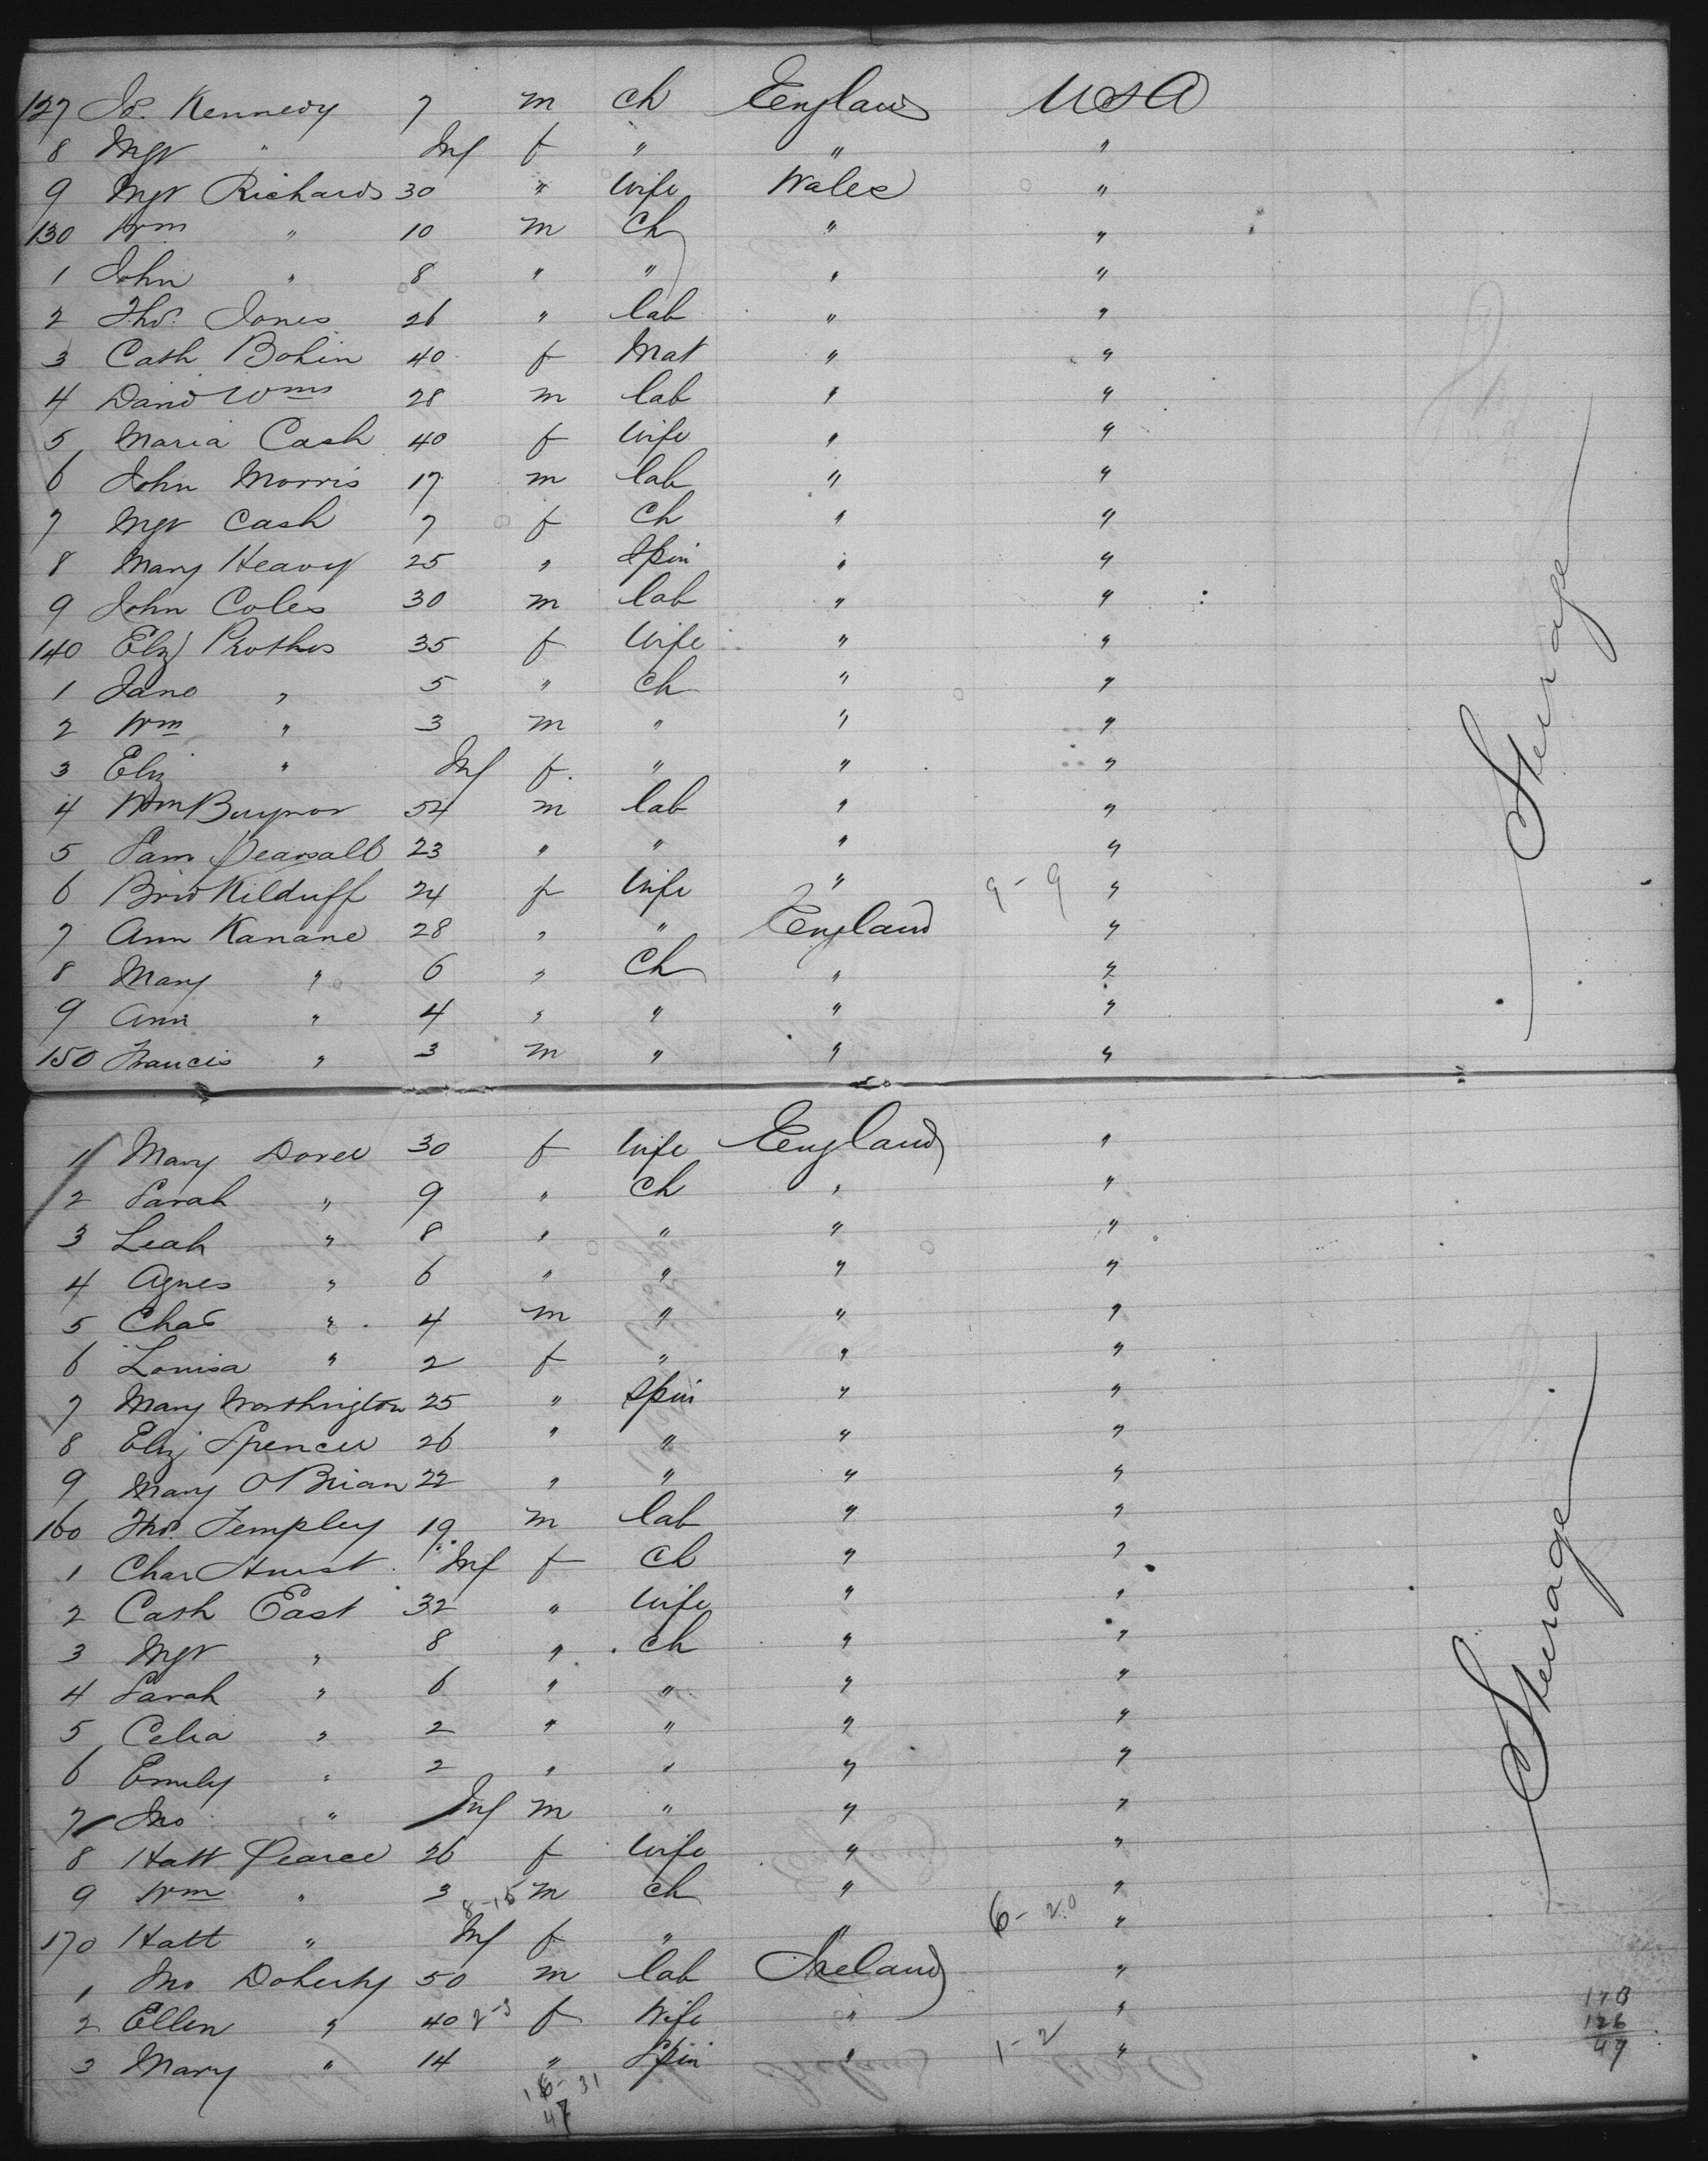 127 Js. Kennedy 7 m Ch England USA
8 Mgr " Inf f " " "
9 Mgr Richards 30 " Wife Wales "
130 Wm " 10 m Ch " "
1 John " 8 " " " "
2 Thos. Jones 26 " lab " "
3 Cath Bohin 40 f Mat " "
4 David Wms 28 m lab " "
5 Maria Cash 40 f Wife " "
6 John Morris 17 m lab " "
7 Mgr Cash 7 f Ch " "
8 Mary Heavy 25 " Spin " "
9 John Coles 30 m lab " "
140 Eliz Prothes 35 f Wife " "
1 Jane " 5 " Ch " "
2 Wm " 3 m " " "
3 Eliz " Inf f " " "
4 Wm 54 m lab " "
5 Sam Pearsall 23 " " " "
6 Brid Kilduff 24 f Wife " 9-9 "
7 Ann Kanane 28 " " England "
8 Mary " 6 " Ch " "
9 Ann " 4 " " " "
150 Francis " 3 m " " "
Steerage
1 Mary Dovee 30 f Wife England "
2 Sarah " 9 " Ch " "
3 Leah " 8 " " " "
4 Agnes " 6 " " " "
5 Chas " 4 m " " "
6 Louisa " 2 f " " "
7 Mary Worthington 25 " Spin " "
8 Eliz Spencer 26 " " " "
9 Mary O Brian 22 " " " "
160 Thos. Templey 19 m lab " "
1 Char Hurst Inf f Ch " "
2 Cath East 32 " Wife " "
3 Mgr " 8 " Ch " "
4 Sarah " 6 " " " "
5 Celia " 2 " " " "
6 Emily " 2 " " " "
7 Jno " Inf m " " "
8 Hatt Pearce 26 f Wife " "
9 Wm " 3 8-15 m Ch " "
170 Hatt " Inf f " " 6-20 "
1 Jno Doherty 50 m lab Ireland "
2 Ellen " 40 2-3 f Wife " "
3 Mary " 14 " Spin " 1-2 "
16-31
47
Steerage
173
126
47